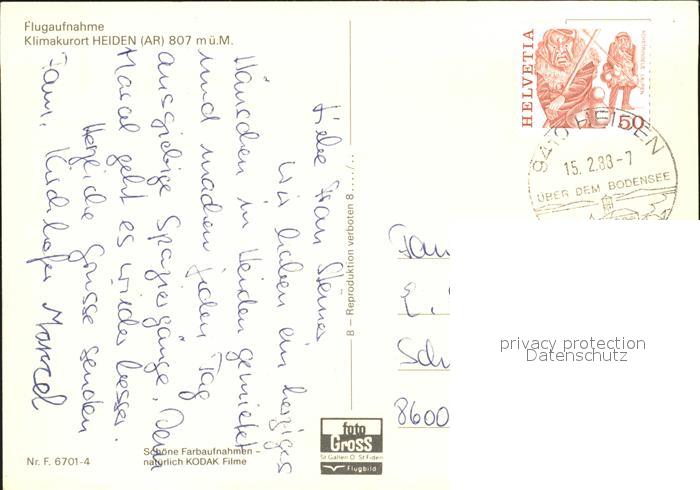 Flugaufnahme
Klimakurort HEIDEN (AR) 807 m ü.M.
Liebe Frau Steiner
Wir haben ein herziges
Häuschen in Heiden gemietet
und machen jeden Tag
ausgiebige Spaziergänge. Dem
Marcel geht es wieder besser.
Herzliche Grüsse senden
Fam. Kirchhofer Marcel
8 – Reproduktion verboten 8..../..
HELVETIA
50
9410 HEIDEN
15.2.88-7
ÜBER DEM BODENSEE
Fam
E.
Sch
8600
privacy protection
Datenschutz
foto
Gross
St Gallen O St Fiden
Flugbild
Nr. F. 6701-4
Schöne Farbaufnahmen –
natürlich KODAK Filme